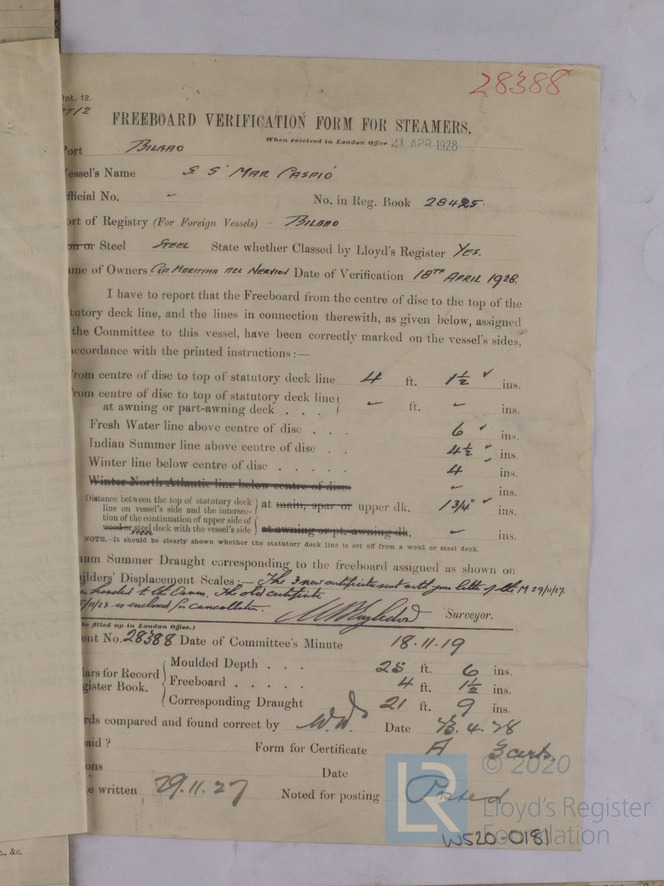 28388
pt. 12.
T12
FREEBOARD VERIFICATION FORM FOR STEAMERS.
When received in London Office 21 APR 1928
ort BILBAO
essel's Name S S "MAR CASPIO"
fficial No. - No. in Reg. Book 28425.
ort of Registry (For Foreign Vessels) BILBAO
on or Steel STEEL State whether Classed by Lloyd's Register YES.
me of Owners CIA MARITIMA DEL NERVION Date of Verification 18TH APRIL 1928.
I have to report that the Freeboard from the centre of disc to the top of the
tutory deck line, and the lines in connection therewith, as given below, assigned
the Committee to this vessel, have been correctly marked on the vessel's sides,
accordance with the printed instructions:—
rom centre of disc to top of statutory deck line 4 ft. 1½ ins.
rom centre of disc to top of statutory deck line
at awning or part-awning deck . . . - ft. - ins.
Fresh Water line above centre of disc . . . 6 ins.
Indian Summer line above centre of disc . . 4½ ins.
Winter line below centre of disc . . . . . 4 ins.
Winter North Atlantic line below centre of disc - ins.
Distance between the top of statutory deck
line on vessel's side and the intersec-
tion of the continuation of upper side of
wood or steel deck with the vessel's side
STEEL
at main, spar or upper dk. 1¾ ins.
at awning or pt.-awning dk. - ins.
NOTE.—It should be clearly shown whether the statutory deck line is set off from a wood or steel deck.
num Summer Draught corresponding to the freeboard assigned as shown on
uilders' Displacement Scales:— The 3 new certificates sent with your letter of the M 29/11/27.
handed to the Owners. The old certificate
/11/23 is enclosed for cancellation. Surveyor.
be filled up in London Office.)
ent No. 28388 Date of Committee's Minute 18.11.19
lars for Record
gister Book.
Moulded Depth . . . 25 ft. 6 ins.
Freeboard . . . . . 4 ft. 1½ ins.
Corresponding Draught 21 ft. 9 ins.
rds compared and found correct by Date 23.4.28
aid ? Form for Certificate A 3 certs.
ons Date
e written 29.11.27 Noted for posting Posted
© 2020
LR Lloyd's Register
Foundation
W520-0181
., &c.